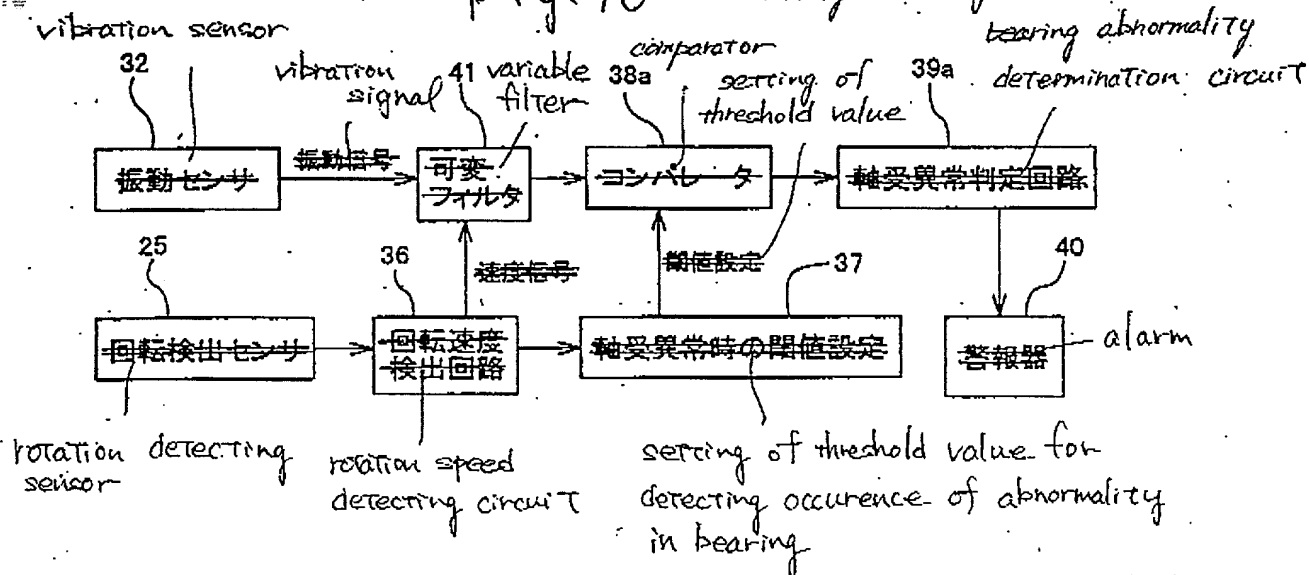 vibration sensor
32
vibration
signal
41
variable
filter
comparator
38a
setting of
threshold value
39a
bearing abnormality
determination circuit
振動センサ
振動信号
可変
フィルタ
コンパレータ
軸受異常判定回路
25
36
速度信号
閾値設定
37
40
回転検出センサ
回転速度
検出回路
軸受異常時の閾値設定
警報器
alarm
rotation detecting
sensor
rotation speed
detecting circuit
setting of threshold value for
detecting occurence of abnormality
in bearing